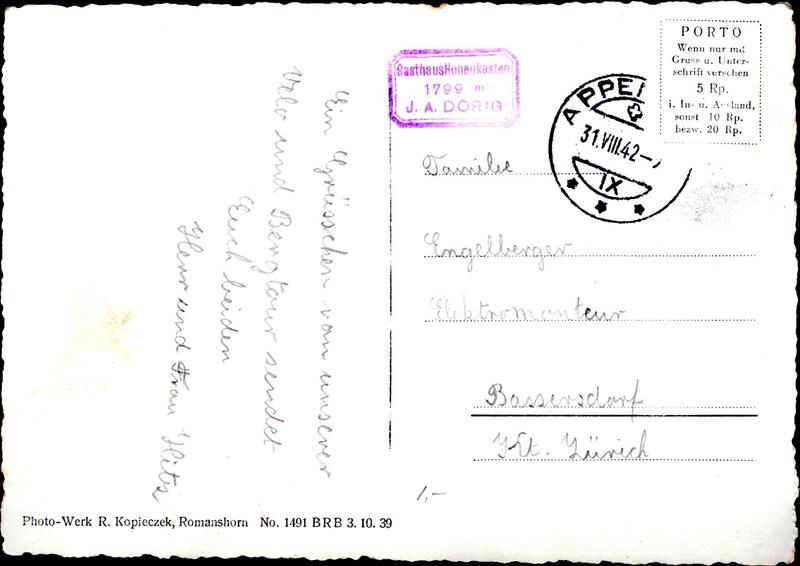 Ein Grüsschen von unserer
Velo und Bergtour sendet
Euch beiden
Herr und Frau
GasthausHohenkasten
1799 m
J. A. DÖRIG
APPEN
31.VIII.42-
IX
PORTO
Wenn nur mit
Gruss u. Unter-
schrift versehen
5 Rp.
i. In- u. Ausland,
sonst 10 Rp.
bezw. 20 Rp.
Familie
Engelberger
Elektromonteur
Bassersdorf
Kt. Zürich
1,-
Photo-Werk R. Kopieczek, Romanshorn No. 1491 BRB 3. 10. 39